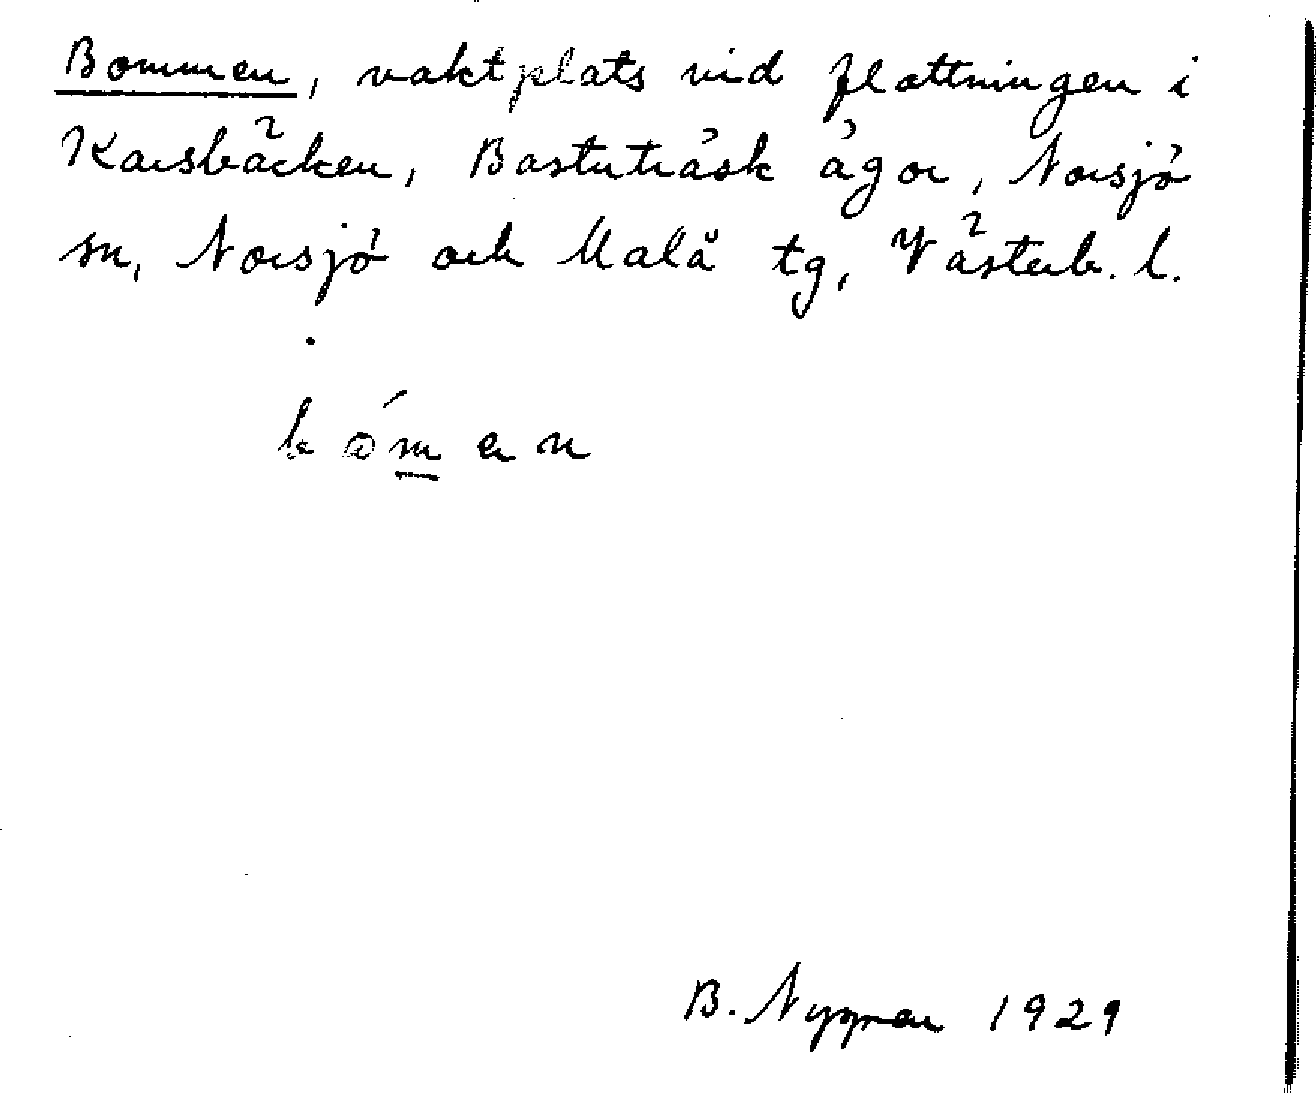 Bommen, vaktplats vid flottningen i
Karsbäcken, Bastuträsk ägor, Norsjö
sn, Norsjö och Malå tg, Västerb. l.
B. Nygren 1929